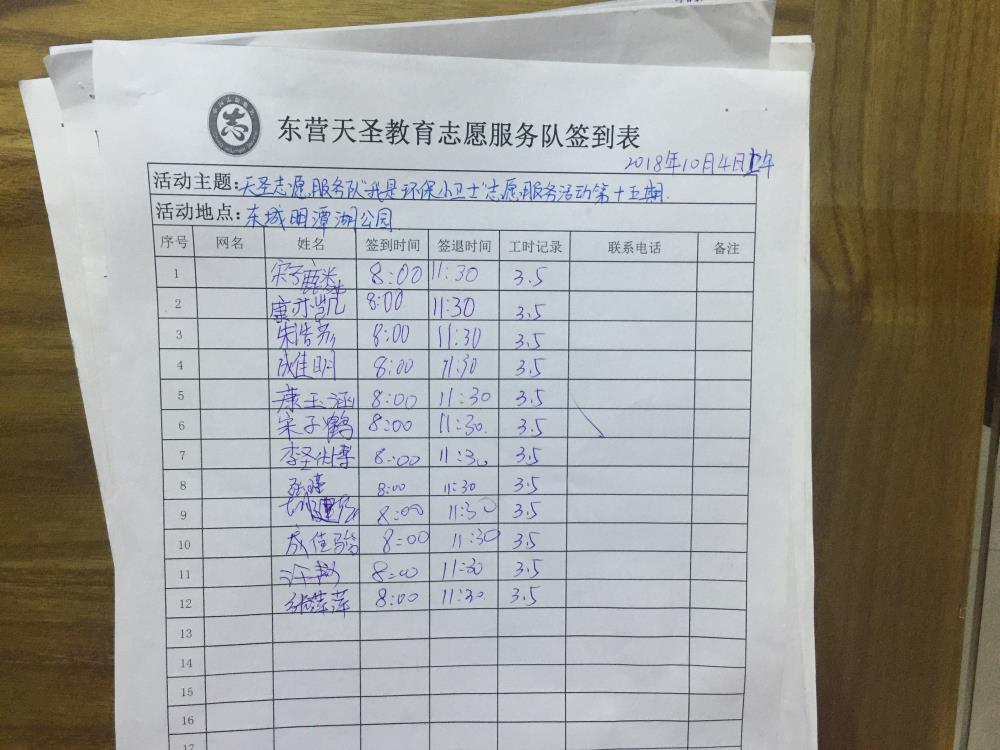 志
东营天圣教育志愿服务队签到表
2018年10月4日上午
活动主题:天圣志愿服务队"我是环保小卫士"志愿服务活动第十五期.
活动地点:东城明潭湖公园
序号 网名 姓名 签到时间 签退时间 工时记录 联系电话 备注
1 8:00 11:30 3.5
2 康亦凯 8:00 11:30 3.5
3 朱浩 8:00 11:30 3.5
4 成佳明 8:00 11:30 3.5
5 康玉涵 8:00 11:30 3.5
6 宋子鹤 8:00 11:30. 3.5
7 李圣 8:00 11:30 3.5
8 8:00 11:30 3.5
9 8:00 11:30 3.5
10 成佳骏 8:00 11:30 3.5
11 8:00 11:30 3.5
12 张萍萍 8:00 11:30 3.5
13
14
15
16
17